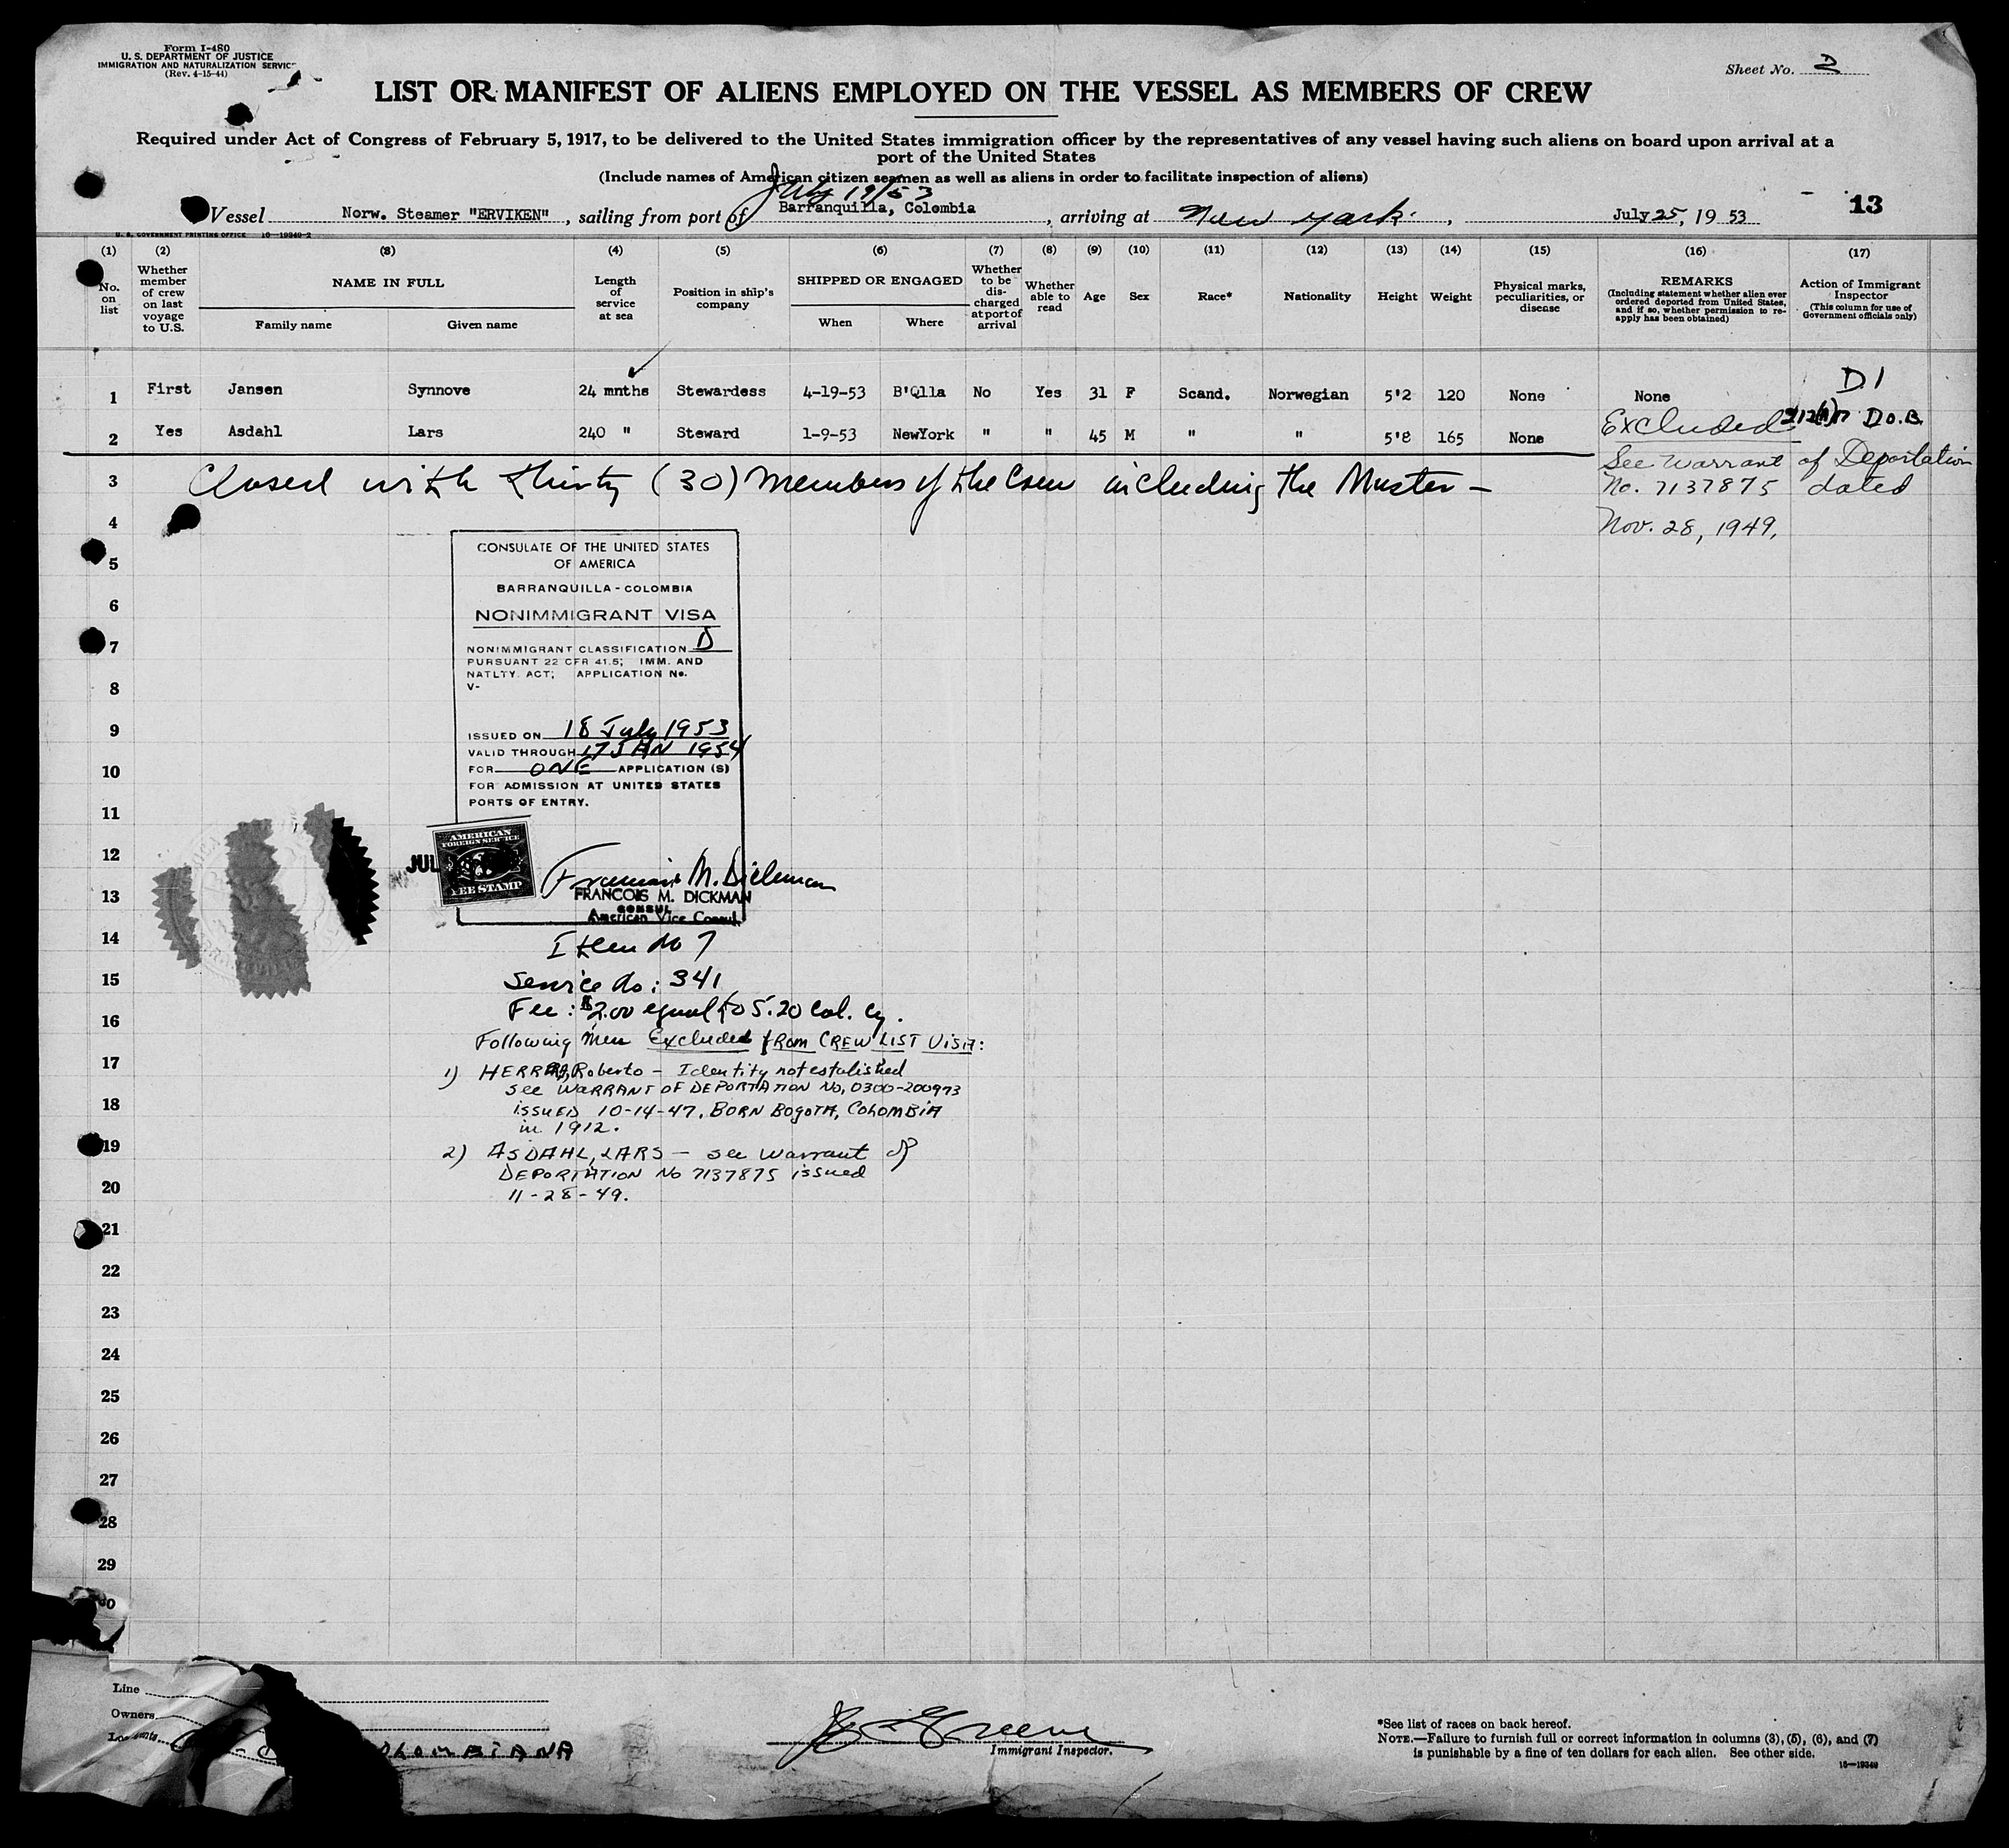 Form I-480
U. S. DEPARTMENT OF JUSTICE
IMMIGRATION AND NATURALIZATION SERVICE
(Rev. 4-15-44)
Sheet No. 2
LIST OR MANIFEST OF ALIENS EMPLOYED ON THE VESSEL AS MEMBERS OF CREW
Required under Act of Congress of February 5, 1917, to be delivered to the United States immigration officer by the representatives of any vessel having such aliens on board upon arrival at a
port of the United States
(Include names of American citizen seamen as well as aliens in order to facilitate inspection of aliens)
July 19/53
13
Vessel Norw. Steamer "ERVIKEN" , sailing from port of Barranquilla, Colombia , arriving at New York. , July 25, 19 53
U. S. GOVERNMENT PRINTING OFFICE 16-19340-2
(1) (2) (3) (4) (5) (6) (7) (8) (9) (10) (11) (12) (13) (14) (15) (16) (17)
No. on list
Whether member of crew on last voyage to U.S.
NAME IN FULL
Family name
Given name
Length of service at sea
Position in ship's company
SHIPPED OR ENGAGED
When
Where
Whether to be dis-charged at port of arrival
Whether able to read
Age
Sex
Race*
Nationality
Height
Weight
Physical marks, peculiarities, or disease
REMARKS
(Including statement whether alien ever ordered deported from United States, and if so, whether permission to re-apply has been obtained)
Action of Immigrant Inspector
(This column for use of Government officials only)
1 First Jansen Synnove 24 mnths Stewardess 4-19-53 B'Qlla No Yes 31 F Scand. Norwegian 5'2 120 None None D1
2 Yes Asdahl Lars 240 " Steward 1-9-53 NewYork " " 45 M " " 5'8 165 None Excluded D.O.B.
See Warrant of Deportation
No. 7137875 dated
Nov. 28, 1949.
3 Closed with thirty (30) members of the Crew including the Master —
4
5
6
7
8
9
10
11
12
13
14
15
16
17
18
19
20
21
22
23
24
25
26
27
28
29
CONSULATE OF THE UNITED STATES
OF AMERICA
BARRANQUILLA - COLOMBIA
NONIMMIGRANT VISA
NONIMMIGRANT CLASSIFICATION D
PURSUANT 22 CFR 41.5; IMM. AND
NATLTY. ACT; APPLICATION No.
V-
ISSUED ON 18 July 1953
VALID THROUGH 17 JAN 1954
FOR ONE APPLICATION (S)
FOR ADMISSION AT UNITED STATES
PORTS OF ENTRY.
JUL
AMERICAN
FOREIGN SERVICE
FEE STAMP
Francois M. Dickman
FRANCOIS M. DICKMAN
CONSUL
American Vice Consul
Item No 7
Service No: 341
Fee: $2.00 equal to 5.20 Col. Cy.
Following men Excluded from CREW LIST VISA:
1) HERRERA, Roberto — Identity not established
see WARRANT OF DEPORTATION No, 0300-200973
issued 10-14-47. BORN BOGOTA, COLOMBIA
in 1912.
2) ASDAHL, LARS — see Warrant of
DEPORTATION No 7137875 issued
11-28-49.
Line
Owners
OLOMBIANA
Greene
Immigrant Inspector.
*See list of races on back hereof.
NOTE.—Failure to furnish full or correct information in columns (3), (5), (6), and (7)
is punishable by a fine of ten dollars for each alien. See other side.
16—19340